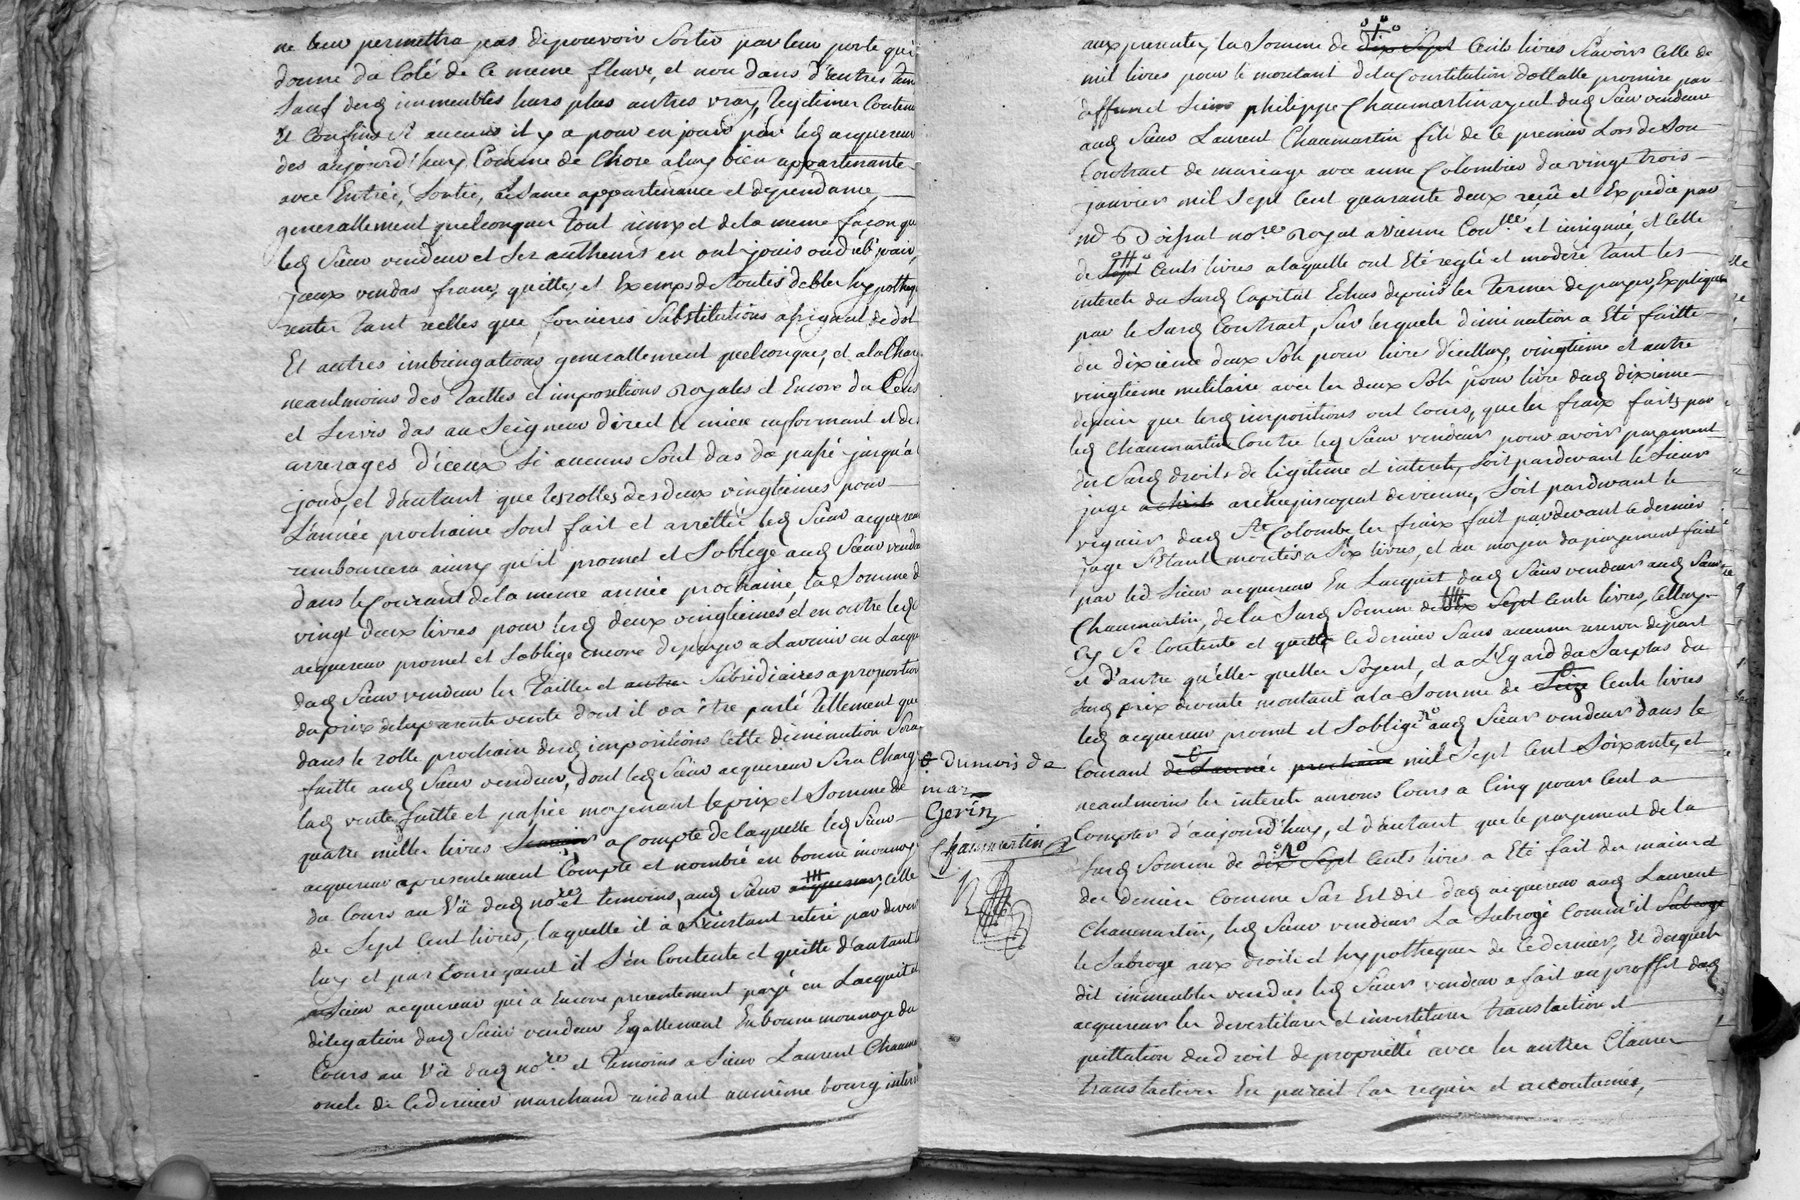 ne leur permettra pas de pouvoir sortir par leur porte qui
donne du Coté de Ce meme fleuve, et non dans d'autres tem
Sauf desd immeubles leurs plus autres vrays, legitimes Contenu
Et Confins Si aucuns il y a pour en jouir par led acquereur
des aujourd'huy Comme de Chose a luy bien appartenante
avec Entrée, Sortie, aisance appartenance et dependance
generallement quelconques tout ainsy et de la meme façon que
led Sieur vendeur et Ses autheurs en ont joui ou dub jouir,
jceux vendus francs, quittes, et Exemps de toutes debtes hypotheq
rentes tant reelles que foncieres Substitutions
Et autres imbringations generallement quelconques, et a la Charge
neantmoins des Tailles et impositions Royales et Encore du Cens
et Servis dus au Seigneur direct le mieux informant et de
arrerages d'iceux Si aucuns Sont dus de passé jusqu'à
jour, et d'autant que les rolles des deux vingtiemes pour
L'année prochaine Sont fait et arrettés led Sieur acquereur
remboursera ainsy qu'il promet et S'oblige aud Sieur vendeur
dans le Courant de la meme année prochaine, la Somme de
vingt deux livres pour lesd deux vingtiemes et en outre led
acquereur promet et S'oblige encore de payer a L'avenir en L'acquit
dud Sieur vendeur les Tailles et autres Subsidiaires a proportion
du prix de la presente vente dont il va être parlé tellement que
dans le rolle prochain desd impositions Cette diminution Sera
faitte aud Sieur vendeur, dont led Sieur acquereur Sera Chargé
lad vente faitte et passée moyenant le prix et Somme de
quatre milles livres a Compte de laquelle led Sieur
acquereur a presentement Compté et nombré en bonne monnoye
du Cours au Vû dud no.re et temoins, aud Sieur acquereur, Celle
de Sept Cent livres, laquelle il à L'instant retiré par devers
luy et par Consequent il S'en Contente et quitte d'autant
Sieur acquereur qui a Encore presentement payé en L'acquit et
délegation dud Sieur vendeur Egallement En bonne monnoye du
Cours au Vû dud no.re et Temoins a Sieur Laurent Chaumar
oncle de Ce dernier marchand residant au même bourg interv
aux presentes, la Somme de dix Sept Cents livres Scavoir Celle de
mil livres pour le montant de la Constitution dottalle promise par
deffunct Sieur philippe Chaumartin ayeul dud Sieur vendeur
aud Sieur Laurent Chaumartin fils de Ce premier Lors de Son
Contract de mariage avec anne Colombier du vingt trois
janvier mil Sept Cent quarante deux reçû et Expedié par
no.re Royal a vienne et insigné, et Celle
de Sept Cents livres a laquelle ont Eté reglé et moderé Tant les
interets du Susd Capital Echus depuis les Termes de payer, Expliqués
par le Susd Contract, Sur lesquels diminution a Eté faitte
du dixieme deux Sols pour livre d'icelluy, vingtieme et autre
vingtieme militaire avec les deux Sols pour livre dud dixieme
depuis que lesd impositions ont Cours, que les fraix faits par
led Chaumartin Contre led Sieur vendeur pour avoir payement
du Susd droits de legitime et interets, Soit pardevant le Sieur
juge archiepiscopal de vienne, Soit pardevant le
viguier dud S.te Colombe les fraix fait pardevant le dernier
juge S'Etant montés a Six livres, et au moyen du payement fait
par led Sieur acquereur En L'acquit dud Sieur vendeur aud Sieur
Chaumartin, de la Susd Somme de dix Sept Cents livres, Celluy
Cy Se Contente et quitte Ce dernier Sans aucune reserve de part
et d'autre qu'elles quelles Soyent, et a L'Egard du Surplus du
Susd prix de vente montant a la Somme de Seize Cents livres
led acquereur promet et S'oblige aud Sieur vendeur dans le
Courant de L'année prochaine mil Sept Cent Soixante, et
neantmoins les interets auront Cours a Cinq pour Cent a
Compter d'aujourd'huy, et d'autant que le payement de la
Susd Somme de dix Sept Cents livres a Eté fait des mains et
des deniers Comme Sus Est dit dud acquereur aud Laurent
Chaumartin, led Sieur vendeur La Subrogé Comm'il Subroge
le Subroge aux droits et hypotheques de Ce dernier, Et desquels
dit immeubles vendus led Sieur vendeur a fait au proffit dud
acquereur les devestitures et investitures translaction et
quittation du droit de proprietté avec les autres Clauses
translatives En pareil Cas requis et accoutumées,
Du mois de
mar
Gerin
Chaumartin